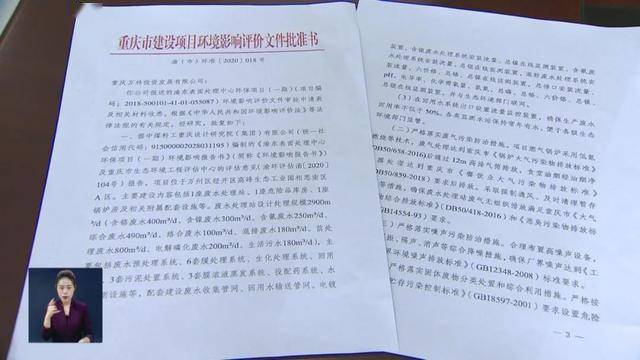 重庆市建设项目环境影响评价文件批准书
渝（市）环准〔2020〕018号
重庆万林投资发展有限公司：
你公司报送的渝东表面处理中心环保项目（一期）（项目编
码：2018-500101-41-01-055087）环境影响评价文件审批申请表
及相关材料收悉。根据《中华人民共和国环境影响评价法》等法
律法规的有关规定，经研究，批复如下：
一、据中煤科工重庆设计研究院（集团）有限公司（统一社
会信用代码：915000002028031195）编制的《渝东表面处理中心
环保项目（一期）环境影响报告书》（简称《环境影响报告书》）
及重庆市生态环境工程评估中心的评估意见（渝环评估函〔2020〕
104号）报告，项目位于万州区经开区高峰生态工业园相思南区
A区。主要建设内容包括1座废水处理站、1座危险品库房、1座
锅炉房及相关附属配套设施等。废水处理站设计处理规模2900m³
/d（含铬废水400m³/d、含镍废水300m³/d、含氰废水250m³/d、
综合废水490m³/d、络合废水100m³/d、混排废水180m³/d、前处
理废水800m³/d、电解磷化废水200m³/d、生活污水180m³/d）。主
要包括废水预处理系统、6套膜处理系统、生化处理系统、回用
、3套污泥处理系统、3套膜浓液蒸发系统、投配药系统、水
设施等，配套建设废水收集管网、回用水输送管网。电镀
装置，含镍废水处理系统安装流量、总镍在线监测装置，含氰废
（3）在回用水系统出口设置流量监控装置，确保生产废水
回用率不低于50%。各类监测水塔保持常年有水，便于各级生态
环境部门监管。
严格落实废气污染防治措施。项目燃气锅炉采用低氮
燃烧技术，废气处理达到重庆市《锅炉大气污染物排放标准》
DB50/658-2016）后通过12m高排气筒排放。食堂油烟经油烟净
处理达到重庆市《餐饮业大气污染物排放标准》
DB50/859-2018）要求后排放。采取限制通风、及时清理暂存
措施，确保废水处理站废气无组织排放满足重庆市《大气
综合排放标准》（DB50/418-2016）和《恶臭污染物排放标
（GB14554-93）要求。
（三）严格落实噪声污染防治措施。合理布置高噪声设备，
、隔声、消声等综合降噪措施，确保厂界噪声达到《工
界环境噪声排放标准》（GB12348-2008）标准要求。
严格落实固体废物分类处置和综合利用措施。严格按
贮存污染控制标准》（GB18597-2001）要求设置危险
3